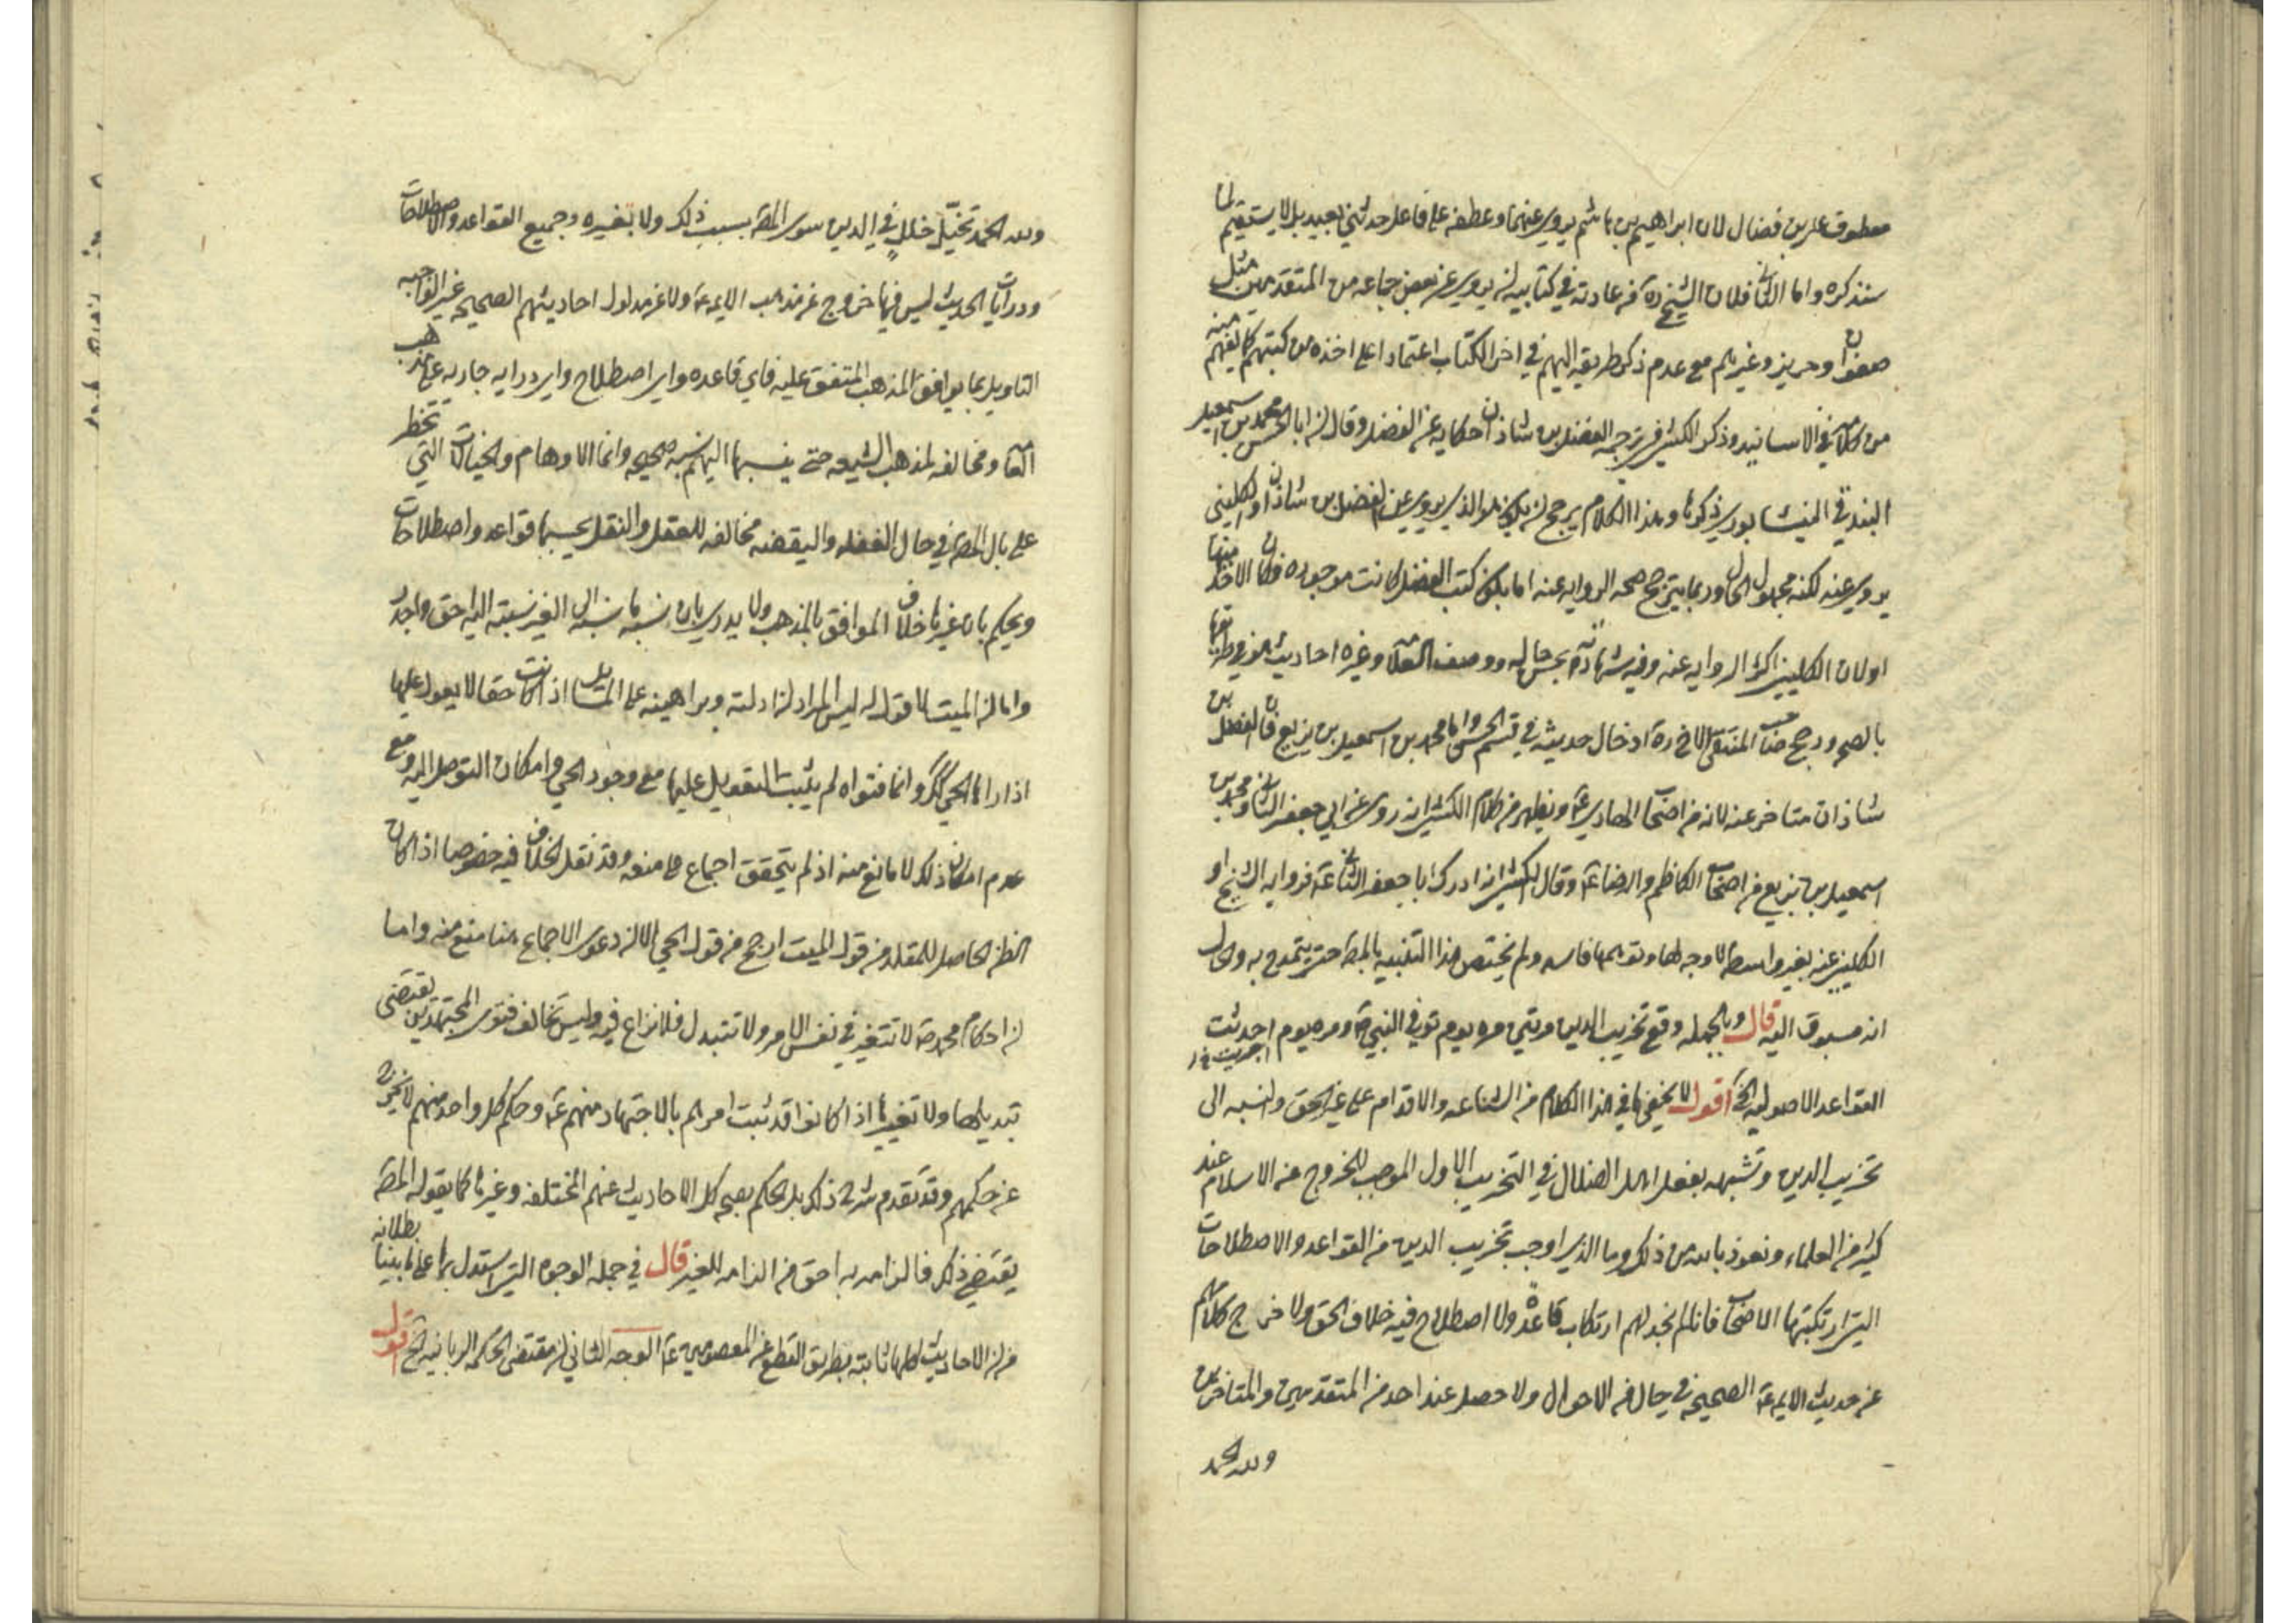 معطوف على بن فضال لان ابراهيم بن هاشم يروى عنهما وعطفه على فاعل حدثنى بعيد بل لا يستقيم لما
سنذكره واما الثانى فلان الشيخ ره من عادته في كتابيه انه يروى عن بعض جماعه من المتقدمين مثل
صفوان وحريز وغيرهم مع عدم ذكر طريقه اليهم في اخر الكتاب اعتمادا على اخذه من كتبهم كما يفهم منه
من كلامه في الاسانيد وذكر الكشى في ترجمه الفضل بن شاذان حكايه عن الفضل وقال ان ابا الحسن محمد بن اسمعيل
البندقي النيشابورى ذكرها وهذا الكلام يرجح ان يكون هو الذى يروى عن الفضل بن شاذان والكلينى
يروى عنه لكنه مجهول الحال وربما يترجح صحه الروايه عنه اما بكون كتب الفضل كانت موجوده فكان الاخذ منها
اولان الكلينى اكثر الروايه عنه وفيه شهادة بحسن حاله ووصف العلامه وغيره احاديث هو في طريقها
بالصحه ورجح صاحب المنتقى الاخ ره ادخال حديثه في قسم الحسن واما محمد بن اسمعيل بن بزيع فان الفضل بن
شاذان متاخر عنه لانه من اصحاب الهادى ع ويظهر من كلام الكشى انه روى عن ابى جعفر الثانى ومحمد بن
اسمعيل بن بزيع من اصحاب الكاظم والرضا ع وقال الكشى انه ادرك ابا جعفر الثانى ع فروايه الشيخ او
الكلينى عنه بغير واسطه لا وجه لها وتوهمها فاسد ولم يختص هذا التنبيه بالمصه حتى يتمدح به والحال
انه مسبوق اليه قال وبالجمله وقع تخريب الدين مرتين مره يوم توفى النبى ص ومره يوم احدثت
العقواعد الاصوليه الخ اقول لا يخفى ما في هذا الكلام من الشناعه والاقدام على غير الحق ونسبه الى
تخريب الدين وتشبيهه بفعل اهل الضلال في التخريب الاول الموجب للخروج عن الاسلام عند
كثير من العلماء ونعوذ بالله من ذلك وما الذى اوجب تخريب الدين من القواعد والاصطلاحات
التى ارتكبتها الاصحاب فانا لم نجد لهم ارتكاب قاعدة ولا اصطلاح فيه خلاف الحق ولا خرج كلامهم
عن حديث الايمه ع الصحيحه في حال من الاحوال ولا حصل عند احد من المتقدمين والمتاخرين
ولله الحمد
ولله الحمد تخيّل خلل في الدين سوى المصه بسبب ذلك ولا بغيره وجميع القواعد والاصطلاحات
ودرايات الحديث ليس فيها خروج عن مذهب الايمه ع ولا عن مدلول احاديثهم الصحيحه غير الواجبه
التاويل بما يوافق المذهب المتفق عليه فاى قاعده واى اصطلاح واى درايه جاريه على مذهب
العامه ومخالفه لمذهب الشيعه حتى ينسبها اليهم نسبه صحيحه وانما الاوهام والخيالات التى تخطر
على بال المصه في حال الغفله واليقضه مخالفه للعقل والنقل يحسبها قواعد واصطلاحات
ويحكم بان غيرها خلاف الموافق بالمذهب ولا يدرى بان نسبه ما نسبه الى الغير نسبته اليه احق واجدر
واما ان الميت لا قول له ليس المراد ان ادلته وبراهينه على المسائل اذا كانت حقا لا يعول عليها
اذا راها الحى كذلك وانما فتواه لم يثبت التعويل عليها مع وجود الحى وامكان التوصل اليه ومع
عدم امكان ذلك لا مانع منه اذ لم يتحقق اجماع على منعه وقد نقل الخلاف فيه خصوصا اذا كان
الظن الحاصل للمقلد من قول الميت ارجح من قول الحى الا ان دعوى الاجماع هنا منع منه واما
ان احكام محمد ص لا تتغير في نفس الامر ولا تتبدل فلا نزاع فيه وليس تخالف فتوى المجتهدين تقتضى
تبديلها ولا تغييرها اذا كانوا قد ثبت امرهم بالاجتهاد منهم ع وحكم كل واحد منهم لا يخرج
عن حكمهم وقد تقدم شرح ذلك بل الحكم بصحه كل الاحاديث عنهم المختلفه وغيرها كما يقوله المصه
يقتضى ذلك فالزامه به احق من الزامه للغير قال في جمله الوجوه التى استدل بها على ما بينا بطلانه
من ان الاحاديث كلها ثابته بطريق القطع عن المعصومين ع الوجه الثانى ان مقتضى الحكمه الربانيه الخ اقول